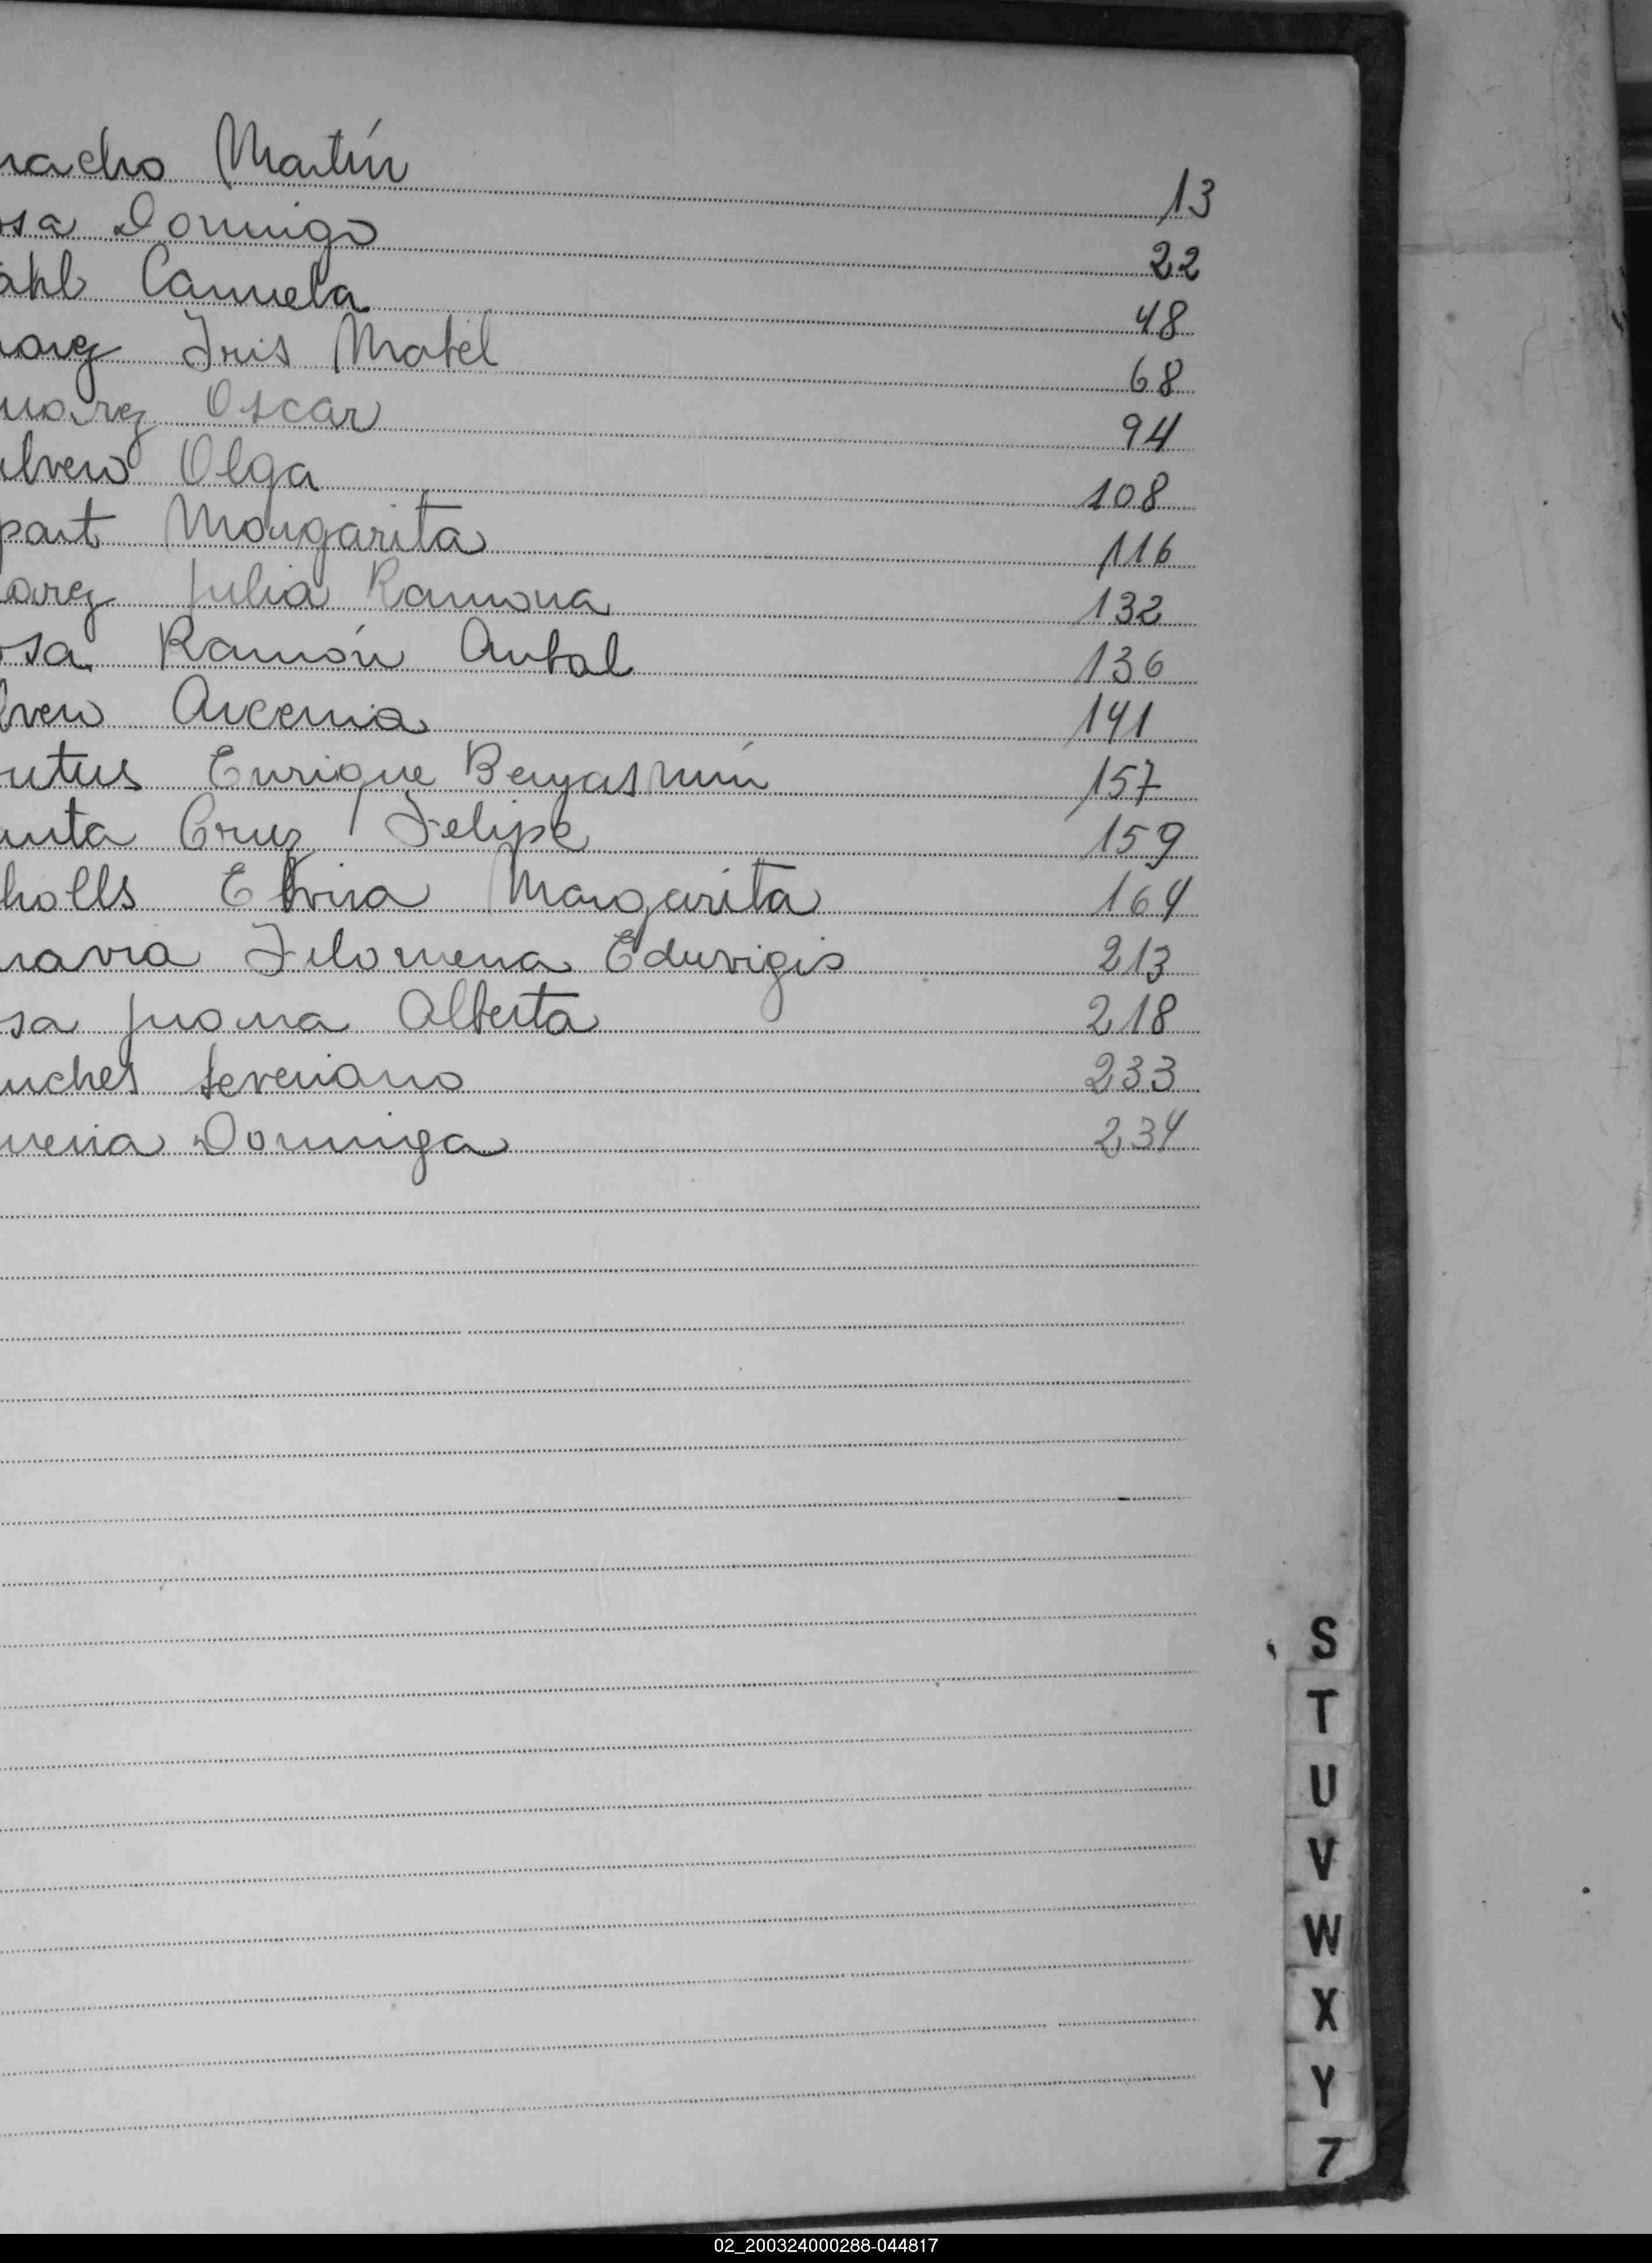 nacho Martín 13
osa Domingo 22
ahl Camuela 48
uarez Iris Mabel 68
uarez Oscar 94
ilvero Olga 108
part Margarita 116
arez Julia Ramona 132
osa Ramón Anbal 136
lvero Arcenia 141
utus Enrique Benjasmín 157
anta Cruz Felipe 159
holls Elvira Margarita 164
navia Filomena Eduvigis 213
sa Juana Alberta 218
nches Severiano 233
veria Dominga 234
S
T
U
V
W
X
Y
Z
02_200324000288-044817